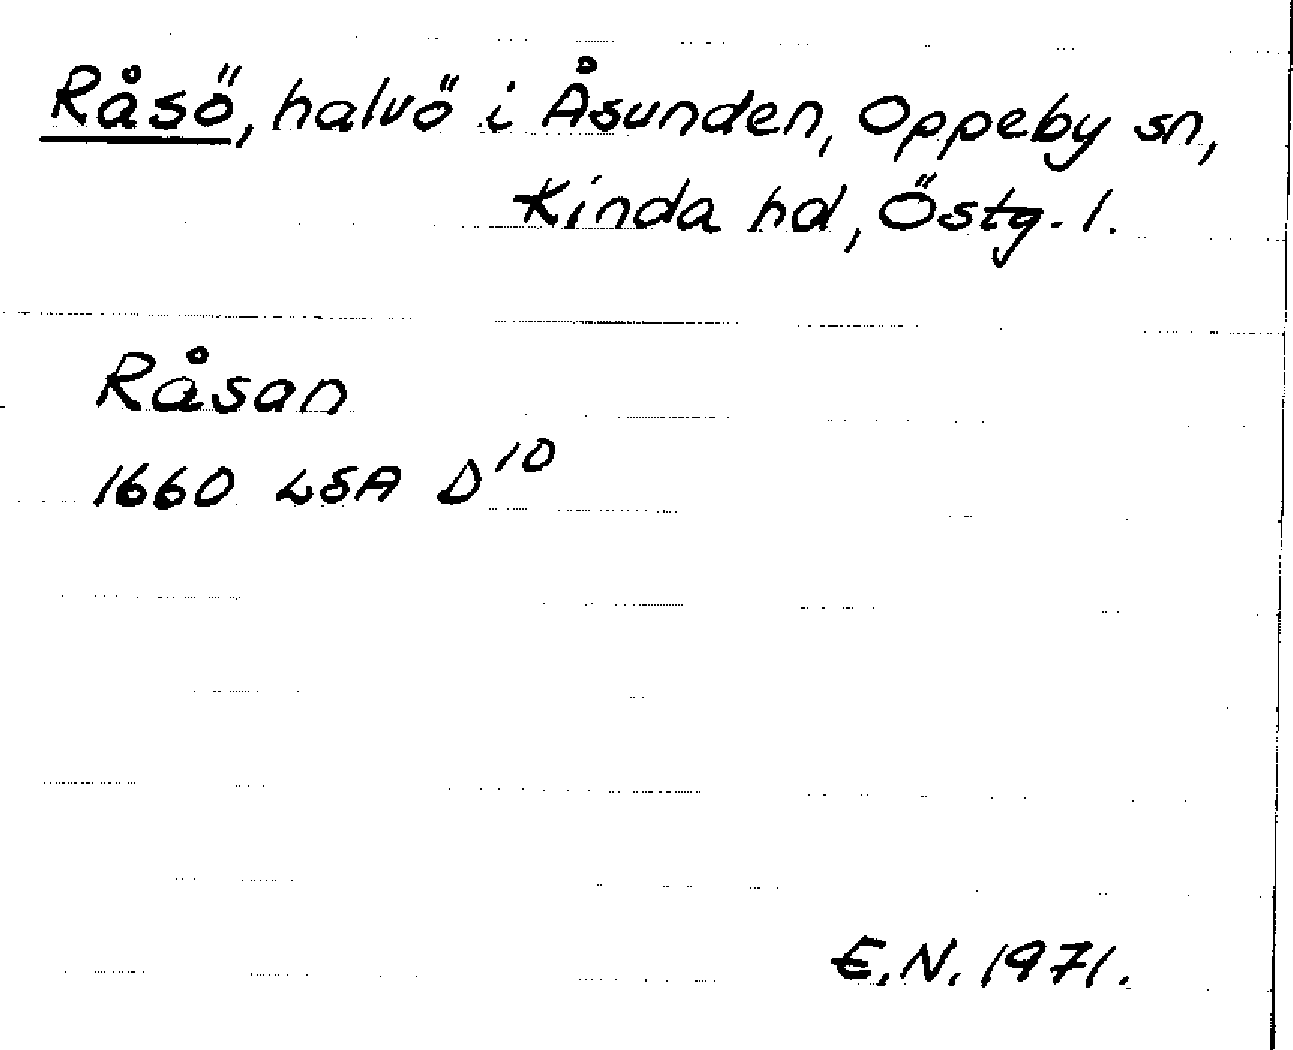 Råsö, halvö i Åsunden, Oppeby sn,
Kinda hd, Östg. l.
Råsan
1660 LSA D10
E.N. 1971.